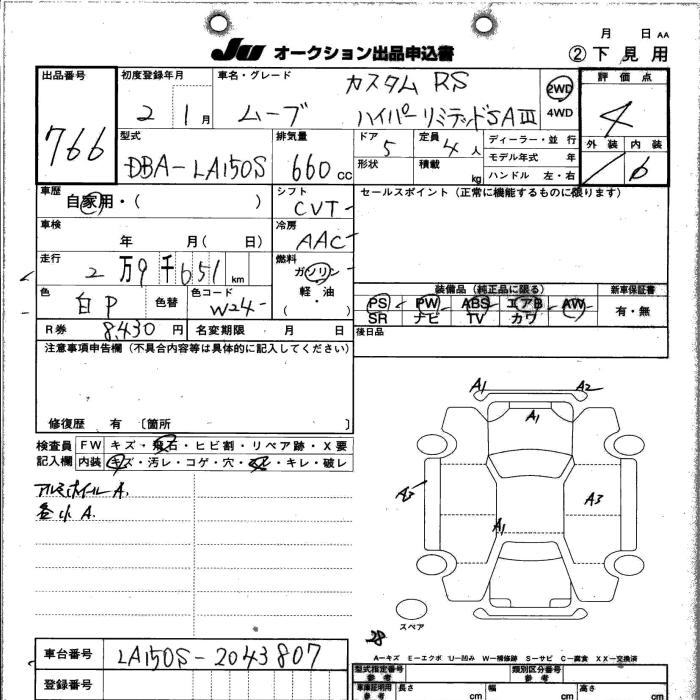 月 日 AA
JU オークション出品申込書
②下見用
出品番号 初度登録年月 車名・グレード 評価点
766
2 1月
ムーブ カスタム RS
ハイパーリミテッドSAⅢ
2WD
4WD
4
外装 内装
6
型式 排気量 ドア 定員 ディーラー・並行
DBA-LA150S 660cc 5 4人 モデル年式 年
形状 積載 kg ハンドル 左・右
車歴 シフト セールスポイント（正常に機能するものに限ります）
自家用・( ) CVT
車検 冷房
年 月( 日) AAC
走行 燃料
2万9千651km ガソリン
軽・油
( )
色 色替 色コード
白P W24
装備品（純正品に限る） 新車保証書
PS PW ABS エアB AW 有・無
SR ナビ TV カワ
R券 8,430円 名変期限 月 日 後日品
注意事項申告欄（不具合内容等は具体的に記入してください）
修復歴 有 〔箇所 〕
検査員 FW キズ・飛石・ヒビ割・リペア跡・X要
記入欄 内装 キズ・汚レ・コゲ・穴・スレ・キレ・破レ
アルミホイールA.
各小A.
A1 A2
A1
A3
A1
スペア
28
A－キズ E－エクボ U－凹み W－補修跡 S－サビ C－腐食 XX－交換済
車台番号 LA150S-2043807
登録番号
型式指定番号 参考 類別区分番号 参考
車庫証明用 参考 長さ cm 幅 cm 高さ cm